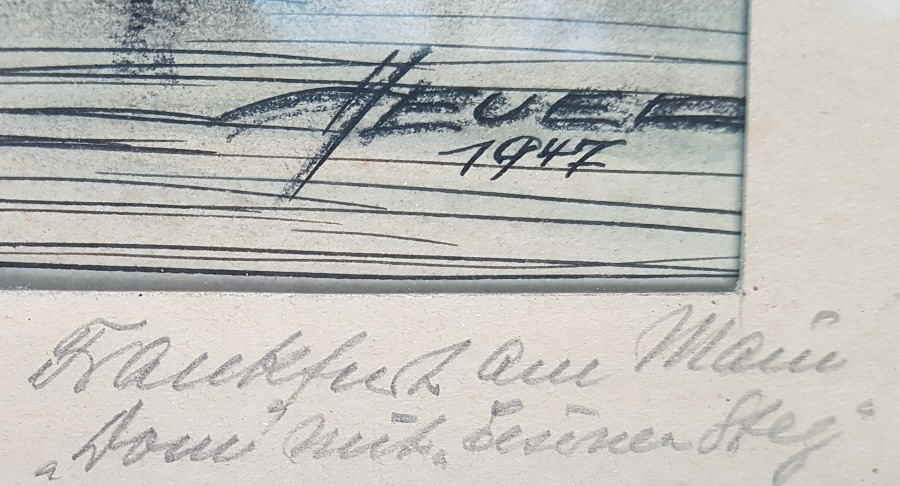 HEUER
1947
Frankfurt am Main
„Dom” mit „Eiserner Steg”